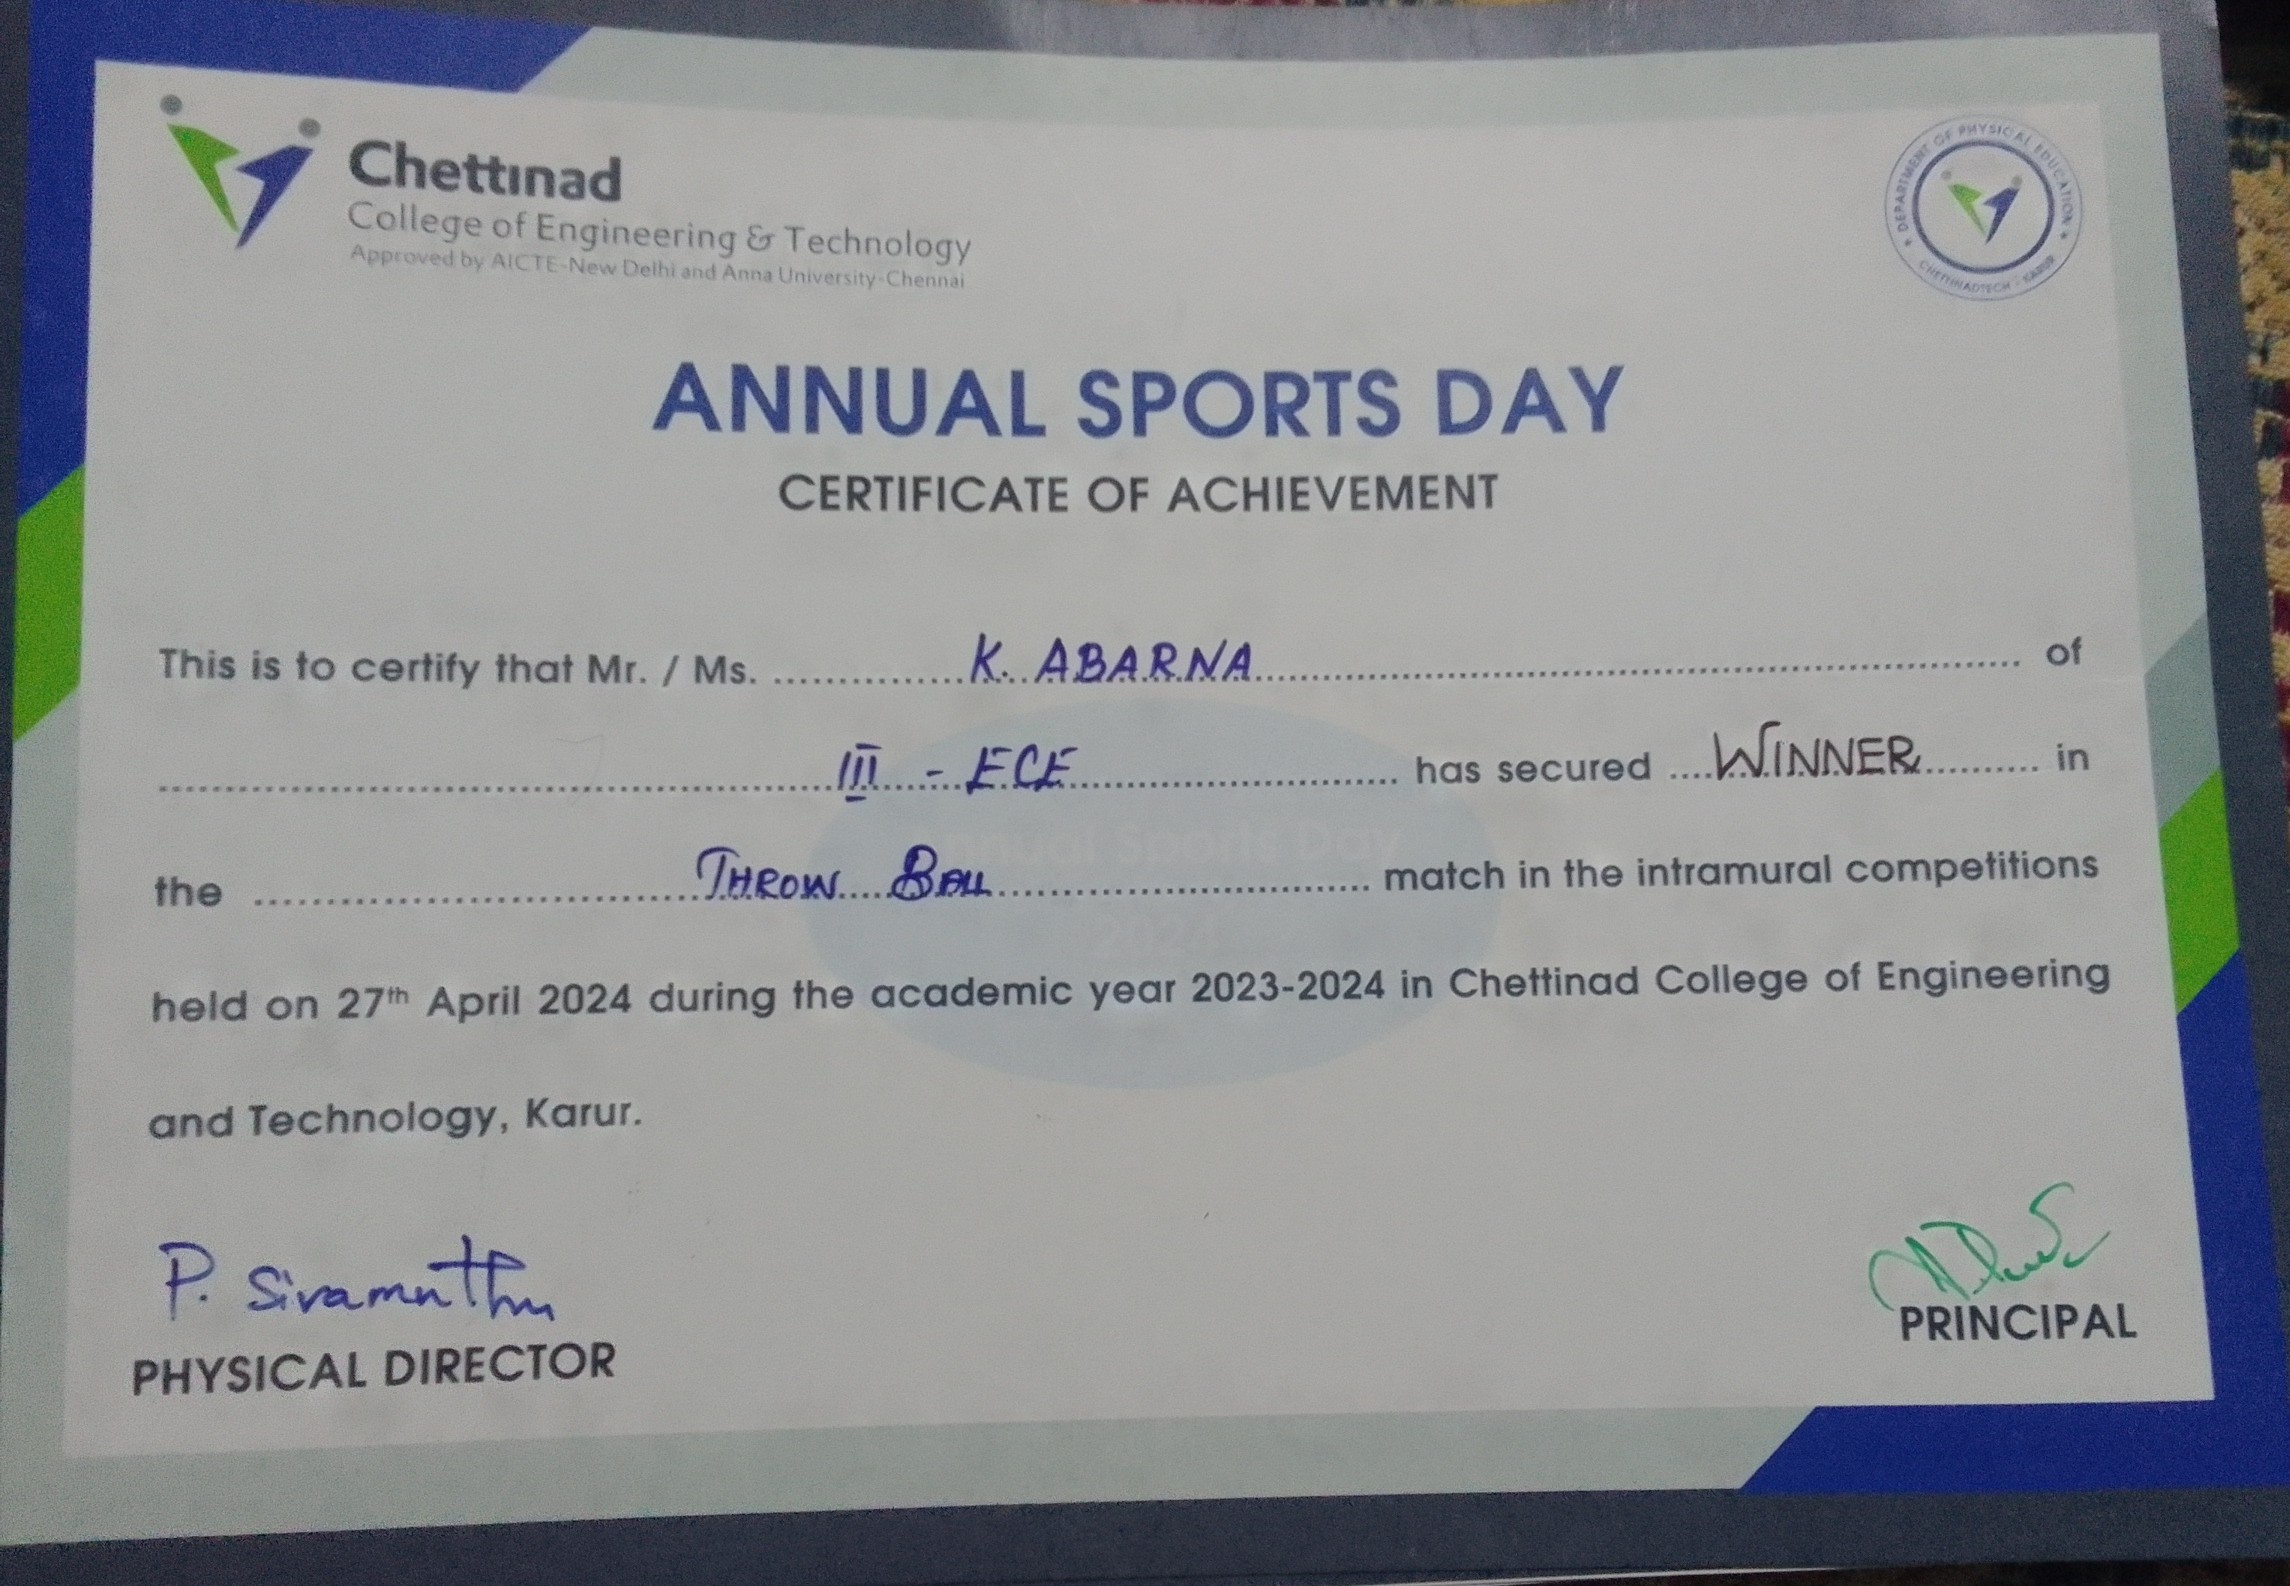 Chettinad
College of Engineering & Technology
Approved by AICTE-New Delhi and Anna University-Chennai
DEPARTMENT OF PHYSICAL EDUCATION
CHETTINADTECH - KARUR
ANNUAL SPORTS DAY
CERTIFICATE OF ACHIEVEMENT
This is to certify that Mr. / Ms. ..............K. ABARNA.............................. of
..............................III - ECE.............................. has secured ....WINNER.......... in
the ..............................THROW BALL.............................. match in the intramural competitions
Annual Sports Day
2024
held on 27th April 2024 during the academic year 2023-2024 in Chettinad College of Engineering
and Technology, Karur.
P. Sivamuthu
PHYSICAL DIRECTOR
PRINCIPAL